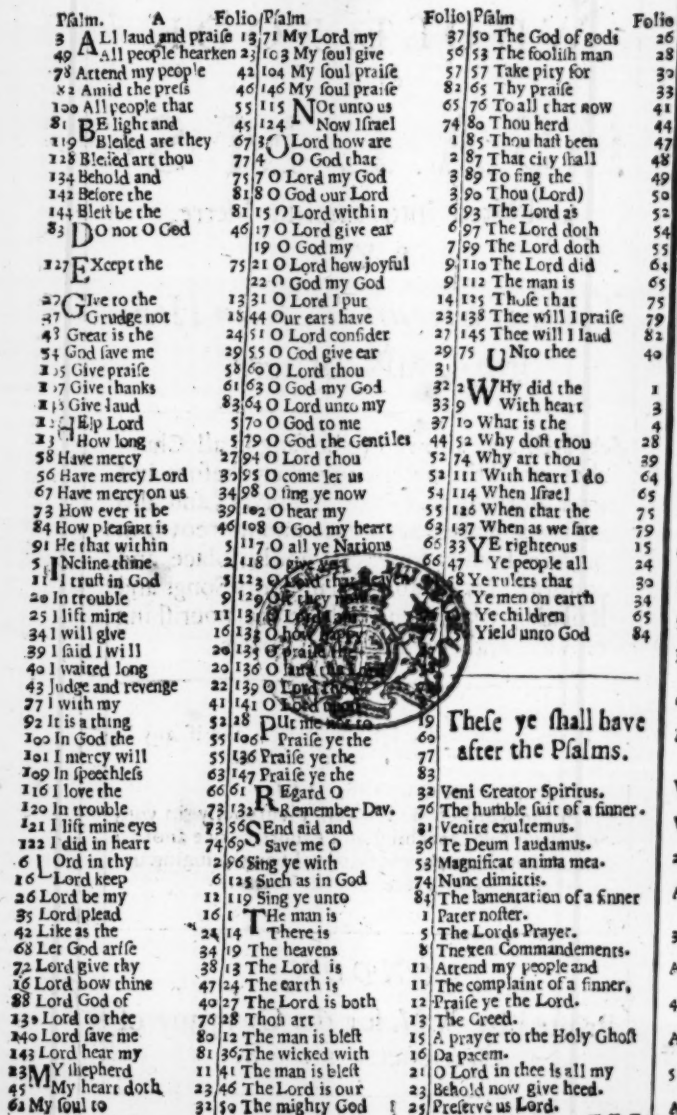 Pſalm. A Folio
3 ALl laud and praiſe 13
49 All people hearken 23
78 Attend my people 42
82 Amid the preſs 46
100 All people that 55
81 BE light and 45
119 Bleſſed are they 67
128 Bleſſed art thou 77
134 Behold and 75
142 Before the 81
144 Bleſt be the 81
83 DO not O God 46
127 EXcept the 75
27 GIve to the 13
37 Grudge not 18
48 Great is the 24
54 God ſave me 29
105 Give praiſe 58
107 Give thanks 61
Give laud 83
12 HElp Lord 5
13 How long 5
58 Have mercy 27
56 Have mercy Lord 30
67 Have mercy on us 34
73 How ever it be 39
84 How pleaſant is 46
91 He that within 5
5 INcline thine 2
11 I truſt in God 5
20 In trouble 9
25 I lift mine 11
34 I will give 16
39 I ſaid I will 20
40 I waited long 20
43 Judge and revenge 22
77 I with my 41
92 It is a thing 52
100 In God the 55
101 I mercy will 55
109 In ſpeechleſs 63
116 I love the 66
120 In trouble 73
121 I lift mine eyes 73
122 I did in heart 74
6 LOrd in thy 2
16 Lord keep 6
26 Lord be my 12
35 Lord plead 16
42 Like as the 24
68 Let God ariſe 34
72 Lord give thy 38
16 Lord bow thine 47
88 Lord God of 40
130 Lord to thee 76
140 Lord ſave me 80
143 Lord hear my 81
23 MY ſhepherd 11
45 My heart doth 23
62 My ſoul to 32
Pſalm Folio
71 My Lord my 37
103 My ſoul give 56
104 My ſoul praiſe 57
146 My ſoul praiſe 82
115 NOt unto us 65
124 Now Iſrael 74
3 O Lord how are 1
4 O God that 2
7 O Lord my God 3
8 O God our Lord 3
15 O Lord within 6
17 O Lord give ear 6
19 O God my 7
21 O Lord how joyful 9
22 O God my God 9
31 O Lord I put 14
44 Our ears have 23
51 O Lord conſider 27
55 O God give ear 29
60 O Lord thou 31
63 O God my God 32
64 O Lord unto my 33
70 O God to me 37
79 O God the Gentiles 44
94 O Lord thou 52
95 O come let us 52
98 O ſing ye now 54
102 O hear my 55
108 O God my heart 63
117 O all ye Nations 66
118 O give 66
123 O Lord that
129 Oft they
131 O Lord
133 O how happy
135 O praiſe the
136 O laud the Lord
139 O Lord thou
141 O Lord upon
28 PUt me not to 19
106 Praiſe ye the 60
136 Praiſe ye the 77
147 Praiſe ye the 83
61 REgard O 32
132 Remember Dav. 76
56 SEnd aid and 31
69 Save me O 36
96 Sing ye with 53
125 Such as in God 74
119 Sing ye unto 84
1 THe man is 1
14 There is 5
19 The heavens 8
13 The Lord is 11
24 The earth is 11
27 The Lord is both 12
28 Thou art 13
12 The man is bleſt 15
36 The wicked with 16
41 The man is bleſt 21
46 The Lord is our 23
50 The mighty God 25
Pſalm Folio
50 The God of gods 26
53 The fooliſh man 28
57 Take pity for 30
65 Thy praiſe 33
76 To all that now 41
80 Thou herd 44
85 Thou haſt been 47
87 That city ſhall 48
89 To ſing the 49
90 Thou (Lord) 50
93 The Lord as 52
97 The Lord doth 54
99 The Lord doth 55
110 The Lord did 64
112 The man is 65
125 Thoſe that 75
138 Thee will I praiſe 79
145 Thee will I laud 82
75 UNto thee 40
2 WHy did the 1
9 With heart 3
10 What is the 4
52 Why doſt thou 28
74 Why art thou 39
111 With heart I do 64
114 When Iſrael 65
126 When that the 75
137 When as we ſate 79
33 YE righteous 15
47 Ye people all 24
58 Ye rulers that 30
Ye men on earth 34
Ye children 65
Yield unto God 84
Theſe ye ſhall have
after the Pſalms.
Veni Creator Spiritus.
The humble ſuit of a ſinner.
Venite exultemus.
Te Deum laudamus.
Magnificat anima mea.
Nunc dimittis.
The lamentation of a ſinner
Pater noſter.
The Lords Prayer.
The ten Commandements.
Attend my people and
The complaint of a ſinner,
Praiſe ye the Lord.
The Creed.
A prayer to the Holy Ghoſt
Da pacem.
O Lord in thee is all my
Behold now give heed.
Preſerve us Lord.